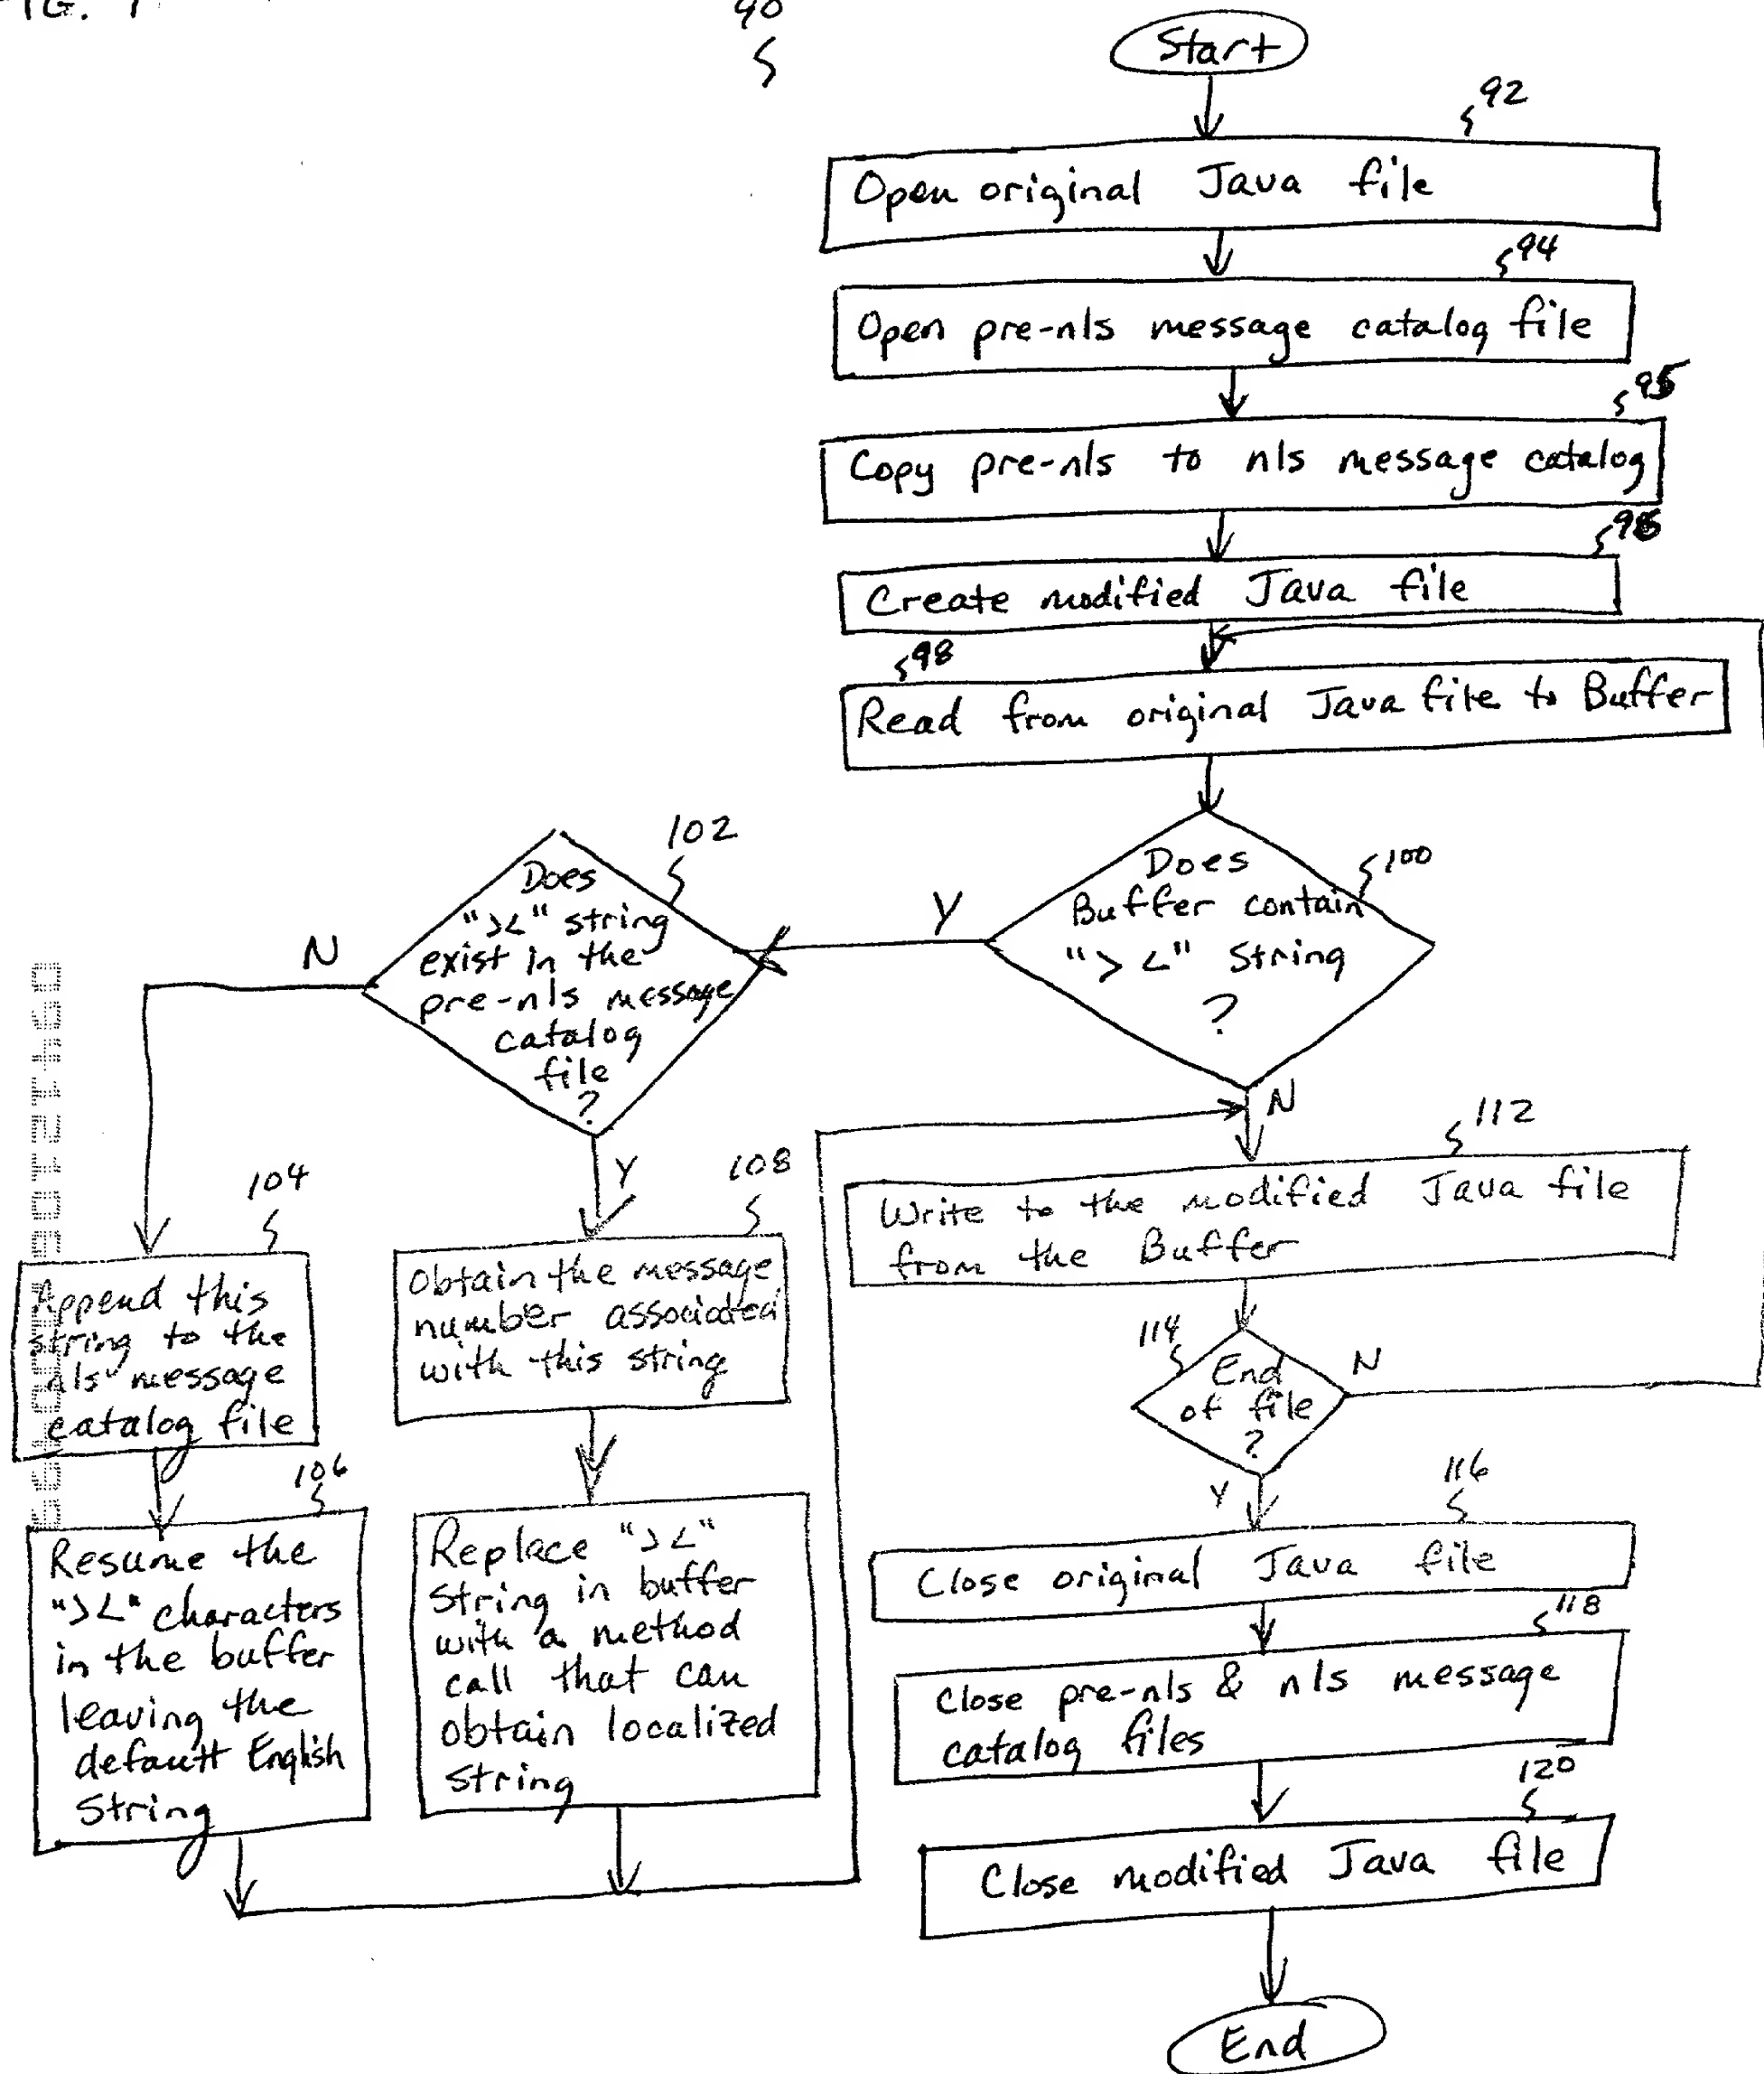 90
Start
92
Open original Java file
94
Open pre-nls message catalog file
95
Copy pre-nls to nls message catalog
96
Create modified Java file
98
Read from original Java file to Buffer
100
Does
Buffer contain
"> <" String
?
Y
N
102
Does
"><" string
exist in the
pre-nls message
catalog
file
?
N
Y
104
Append this
string to the
nls message
catalog file
106
Resume the
"><" characters
in the buffer
leaving the
default English
String
108
Obtain the message
number associated
with this string
Replace "><"
string in buffer
with a method
call that can
obtain localized
string
112
Write to the modified Java file
from the Buffer
114
End
of file
?
N
Y
116
Close original Java file
118
Close pre-nls & nls message
catalog files
120
Close modified Java file
End